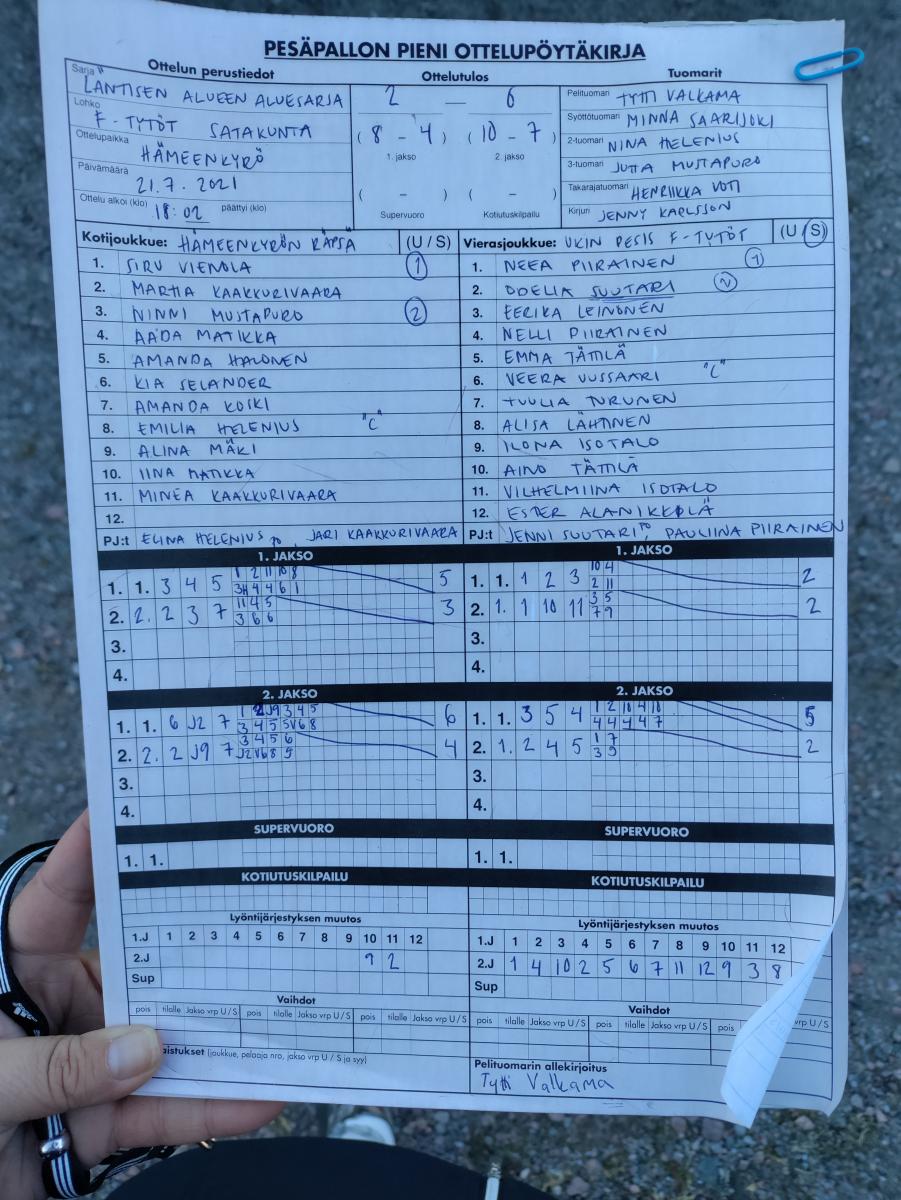 PESÄPALLON PIENI OTTELUPÖYTÄKIRJA
Ottelun perustiedot
Sarja LÄNTISEN ALUEEN ALUESARJA
Lohko F-TYTÖT SATAKUNTA
Ottelupaikka HÄMEENKYRÖ
Päivämäärä 21.7.2021
Ottelu alkoi (klo) 18:02 päättyi (klo)
Ottelutulos
2 — 6
(8 - 4) (10 - 7)
1. jakso 2. jakso
( - ) ( - )
Supervuoro Kotiutuskilpailu
Tuomarit
Pelituomari TYTTI VALKAMA
Syöttötuomari MINNA SAARIJOKI
2-tuomari NINA HELENIUS
3-tuomari JUTTA MUSTAPURO
Takarajatuomari HENRIIKKA VOTI
Kirjuri JENNY KARLSSON
Kotijoukkue: HÄMEENKYRÖN RÄPSÄ (U / S)
1. SIRU VIENOLA 1
2. MARTTA KAAKKURIVAARA
3. NINNI MUSTAPURO 2
4. AADA MATIKKA
5. AMANDA HALONEN
6. KIA SELANDER
7. AMANDA KOSKI
8. EMILIA HELENIUS "C"
9. ALINA MÄKI
10. IINA MATIKKA
11. MINEA KAAKKURIVAARA
12.
PJ:t ELINA HELENIUS PJ, JARI KAAKKURIVAARA
Vierasjoukkue: UKIN PESIS F-TYTÖT (U / S)
1. NEEA PIIRAINEN 1
2. ODELIA SUUTARI 2
3. EERIKA LEINONEN
4. NELLI PIIRAINEN
5. EMMA TÄTTLÄ
6. VEERA VUSSAARI "C"
7. TUULIA TURUNEN
8. ALISA LÄHTINEN
9. ILONA ISOTALO
10. AINO TÄTTLÄ
11. VILHELMIINA ISOTALO
12. ESTER ALANIKKOLÄ
PJ:t JENNI SUUTARI PJ, PAULIINA PIIRAINEN
1. JAKSO
1. 1. 3 4 5 1 2 11 10 8 5
3H 4 4 6 1
2. 2. 2 3 7 11 4 5 3
3 6 6
3.
4.
1. JAKSO
1. 1. 1 2 3 10 4 2
2 11
2. 1. 1 10 11 3 5 2
7 9
3.
4.
2. JAKSO
1. 1. 6 J2 7 1 2 J9 3 4 5 6
3 4 5 5 V6 8
2. 2. 2 J9 7 3 4 5 6 4
J2 V6 8 9
3.
4.
2. JAKSO
1. 1. 3 5 4 1 2 10 4 10 5
4 4 4 4 7
2. 1. 2 4 5 1 7 2
3 9
3.
4.
SUPERVUORO
1. 1.
SUPERVUORO
1. 1.
KOTIUTUSKILPAILU
KOTIUTUSKILPAILU
Lyöntijärjestyksen muutos
1.J 1 2 3 4 5 6 7 8 9 10 11 12
2.J 9 2
Sup
Lyöntijärjestyksen muutos
1.J 1 2 3 4 5 6 7 8 9 10 11 12
2.J 1 4 10 2 5 6 7 11 12 9 3 8
Sup
Vaihdot
pois tilalle Jakso vrp U / S pois tilalle Jakso vrp U / S pois tilalle Jakso vrp U / S
Vaihdot
pois tilalle Jakso vrp U / S pois tilalle Jakso vrp U / S pois vrp U / S
(joukkue, pelaaja nro, jakso vrp U / S ja syy)
Pelituomarin allekirjoitus
Tytti Valkama